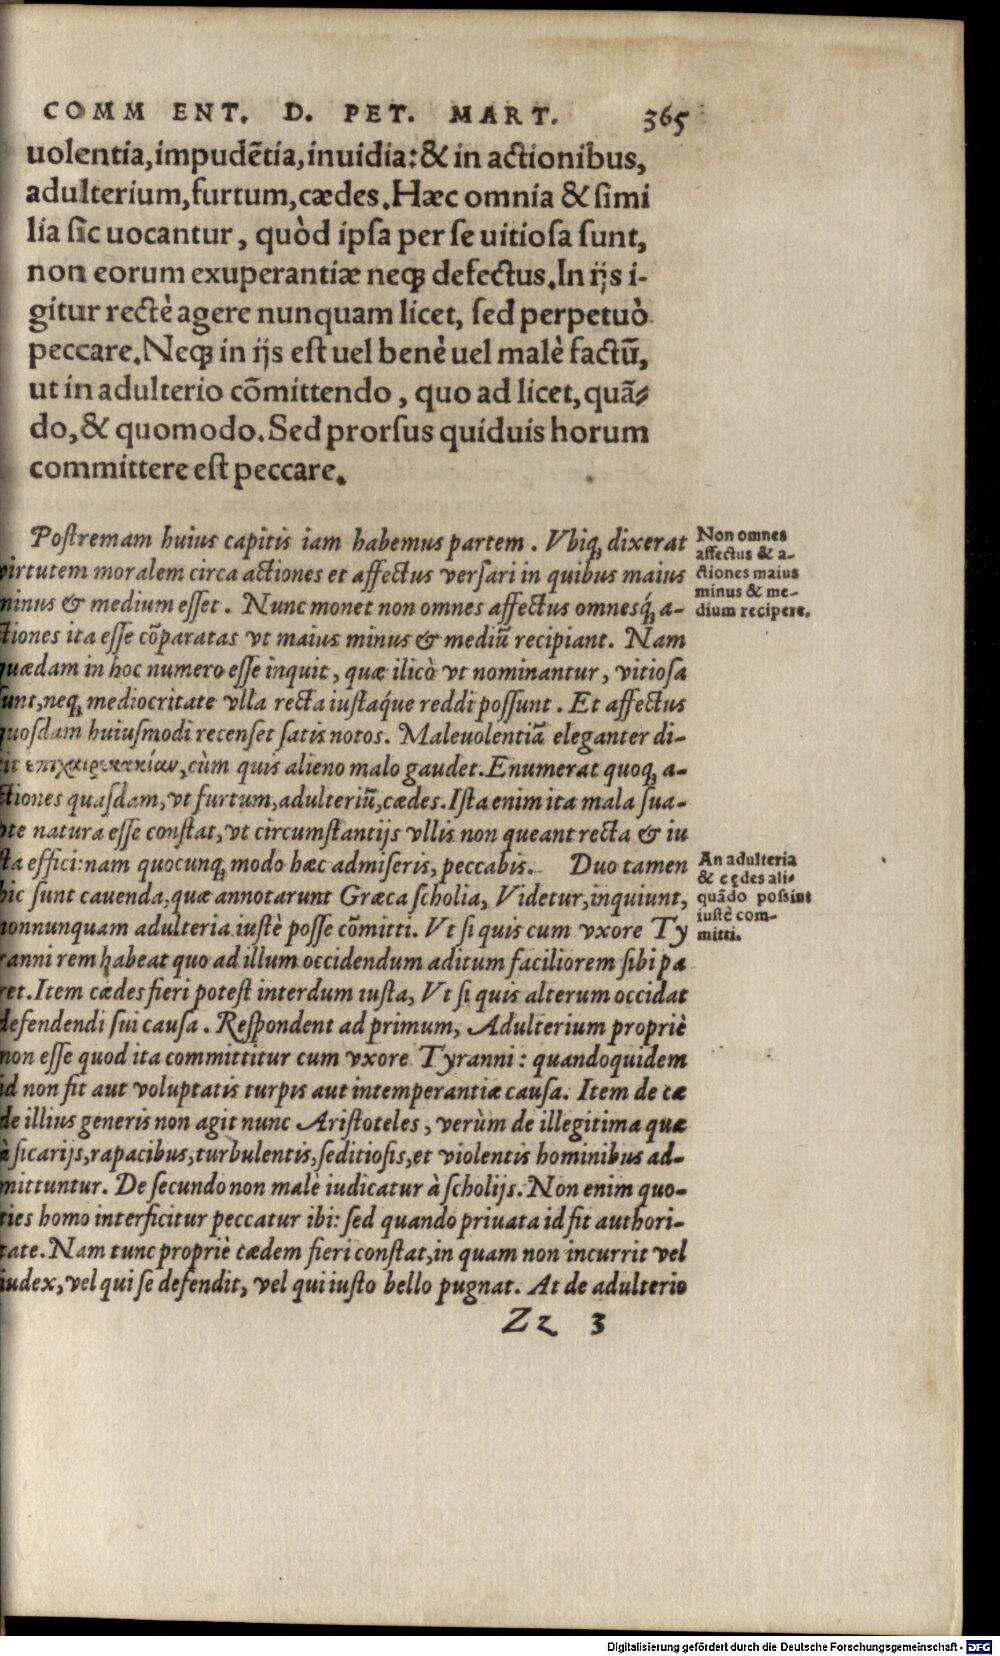 COMMENT. D. PET. MART. 365
uolentia, impudẽtia, inuidia: & in actionibus,
adulterium, furtum, cædes. Hæc omnia & ſimi
lia ſic uocantur, quòd ipſa per ſe uitioſa ſunt,
non eorum exuperantiæ neqꝫ defectus. In ijs i-
gitur rectè agere nunquam licet, ſed perpetuò
peccare. Neqꝫ in ijs eſt uel benè uel malè factũ,
ut in adulterio cõmittendo, quo ad licet, quã-
do, & quomodo. Sed prorſus quiduis horum
committere eſt peccare.
Poſtremam huius capitis iam habemus partem. Vbiqꝫ dixerat
virtutem moralem circa actiones et affectus verſari in quibus maius
minus & medium eſſet. Nunc monet non omnes affectus omnesq́ꝫ a-
ctiones ita eſſe cõparatas vt maius minus & mediũ recipiant. Nam
quædam in hoc numero eſſe inquit, quæ ilicò vt nominantur, vitioſa
ſunt, neqꝫ mediocritate vlla recta iuſtaq́ue reddi poſſunt. Et affectus
quoſdam huiuſmodi recenſet ſatis notos. Maleuolentiã eleganter di-
cit ἐπιχαιρεκακίαν, cùm quis alieno malo gaudet. Enumerat quoqꝫ a-
ctiones quaſdam, vt furtum, adulteriũ, cædes. Iſta enim ita mala ſua-
pte natura eſſe conſtat, vt circumſtantijs vllis non queant recta & iu
ſta effici: nam quocunqꝫ modo hæc admiſeris, peccabis. Duo tamen
hic ſunt cauenda, quæ annotarunt Græca ſcholia, Videtur, inquiunt,
nonnunquam adulteria iuſtè poſſe cõmitti. Vt ſi quis cum vxore Ty
ranni rem habeat quo ad illum occidendum aditum faciliorem ſibi pa
ret. Item cædes fieri poteſt interdum iuſta, Vt ſi quis alterum occidat
defendendi ſui cauſa. Reſpondent ad primum, Adulterium propriè
non eſſe quod ita committitur cum vxore Tyranni: quandoquidem
id non fit aut voluptatis turpis aut intemperantiæ cauſa. Item de cæ
de illius generis non agit nunc Ariſtoteles, verùm de illegitima quæ
à ſicarijs, rapacibus, turbulentis, ſeditioſis, et violentis hominibus ad-
mittuntur. De ſecundo non malè iudicatur à ſcholijs. Non enim quo-
ties homo interficitur peccatur ibi: ſed quando priuata id fit authori-
tate. Nam tunc propriè cædem fieri conſtat, in quam non incurrit vel
iudex, vel qui ſe defendit, vel qui iuſto bello pugnat. At de adulterio
Zz 3
Non omnes
affectus & a-
ctiones maius
minus & me-
dium recipere.
An adulteria
& cędes ali-
quãdo poſsint
iuſtè com-
mitti.
Digitalisierung gefördert durch die Deutsche Forschungsgemeinschaft - DFG